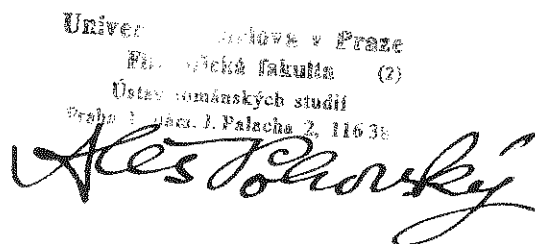 v Praze
fakulta (2)
Ústav románských studií
Praha 1, nám. J. Palacha 2, 116 38
Aleš Pohorský